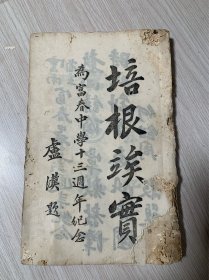 培根竢實
為富春中學十三週年紀念
盧漢題